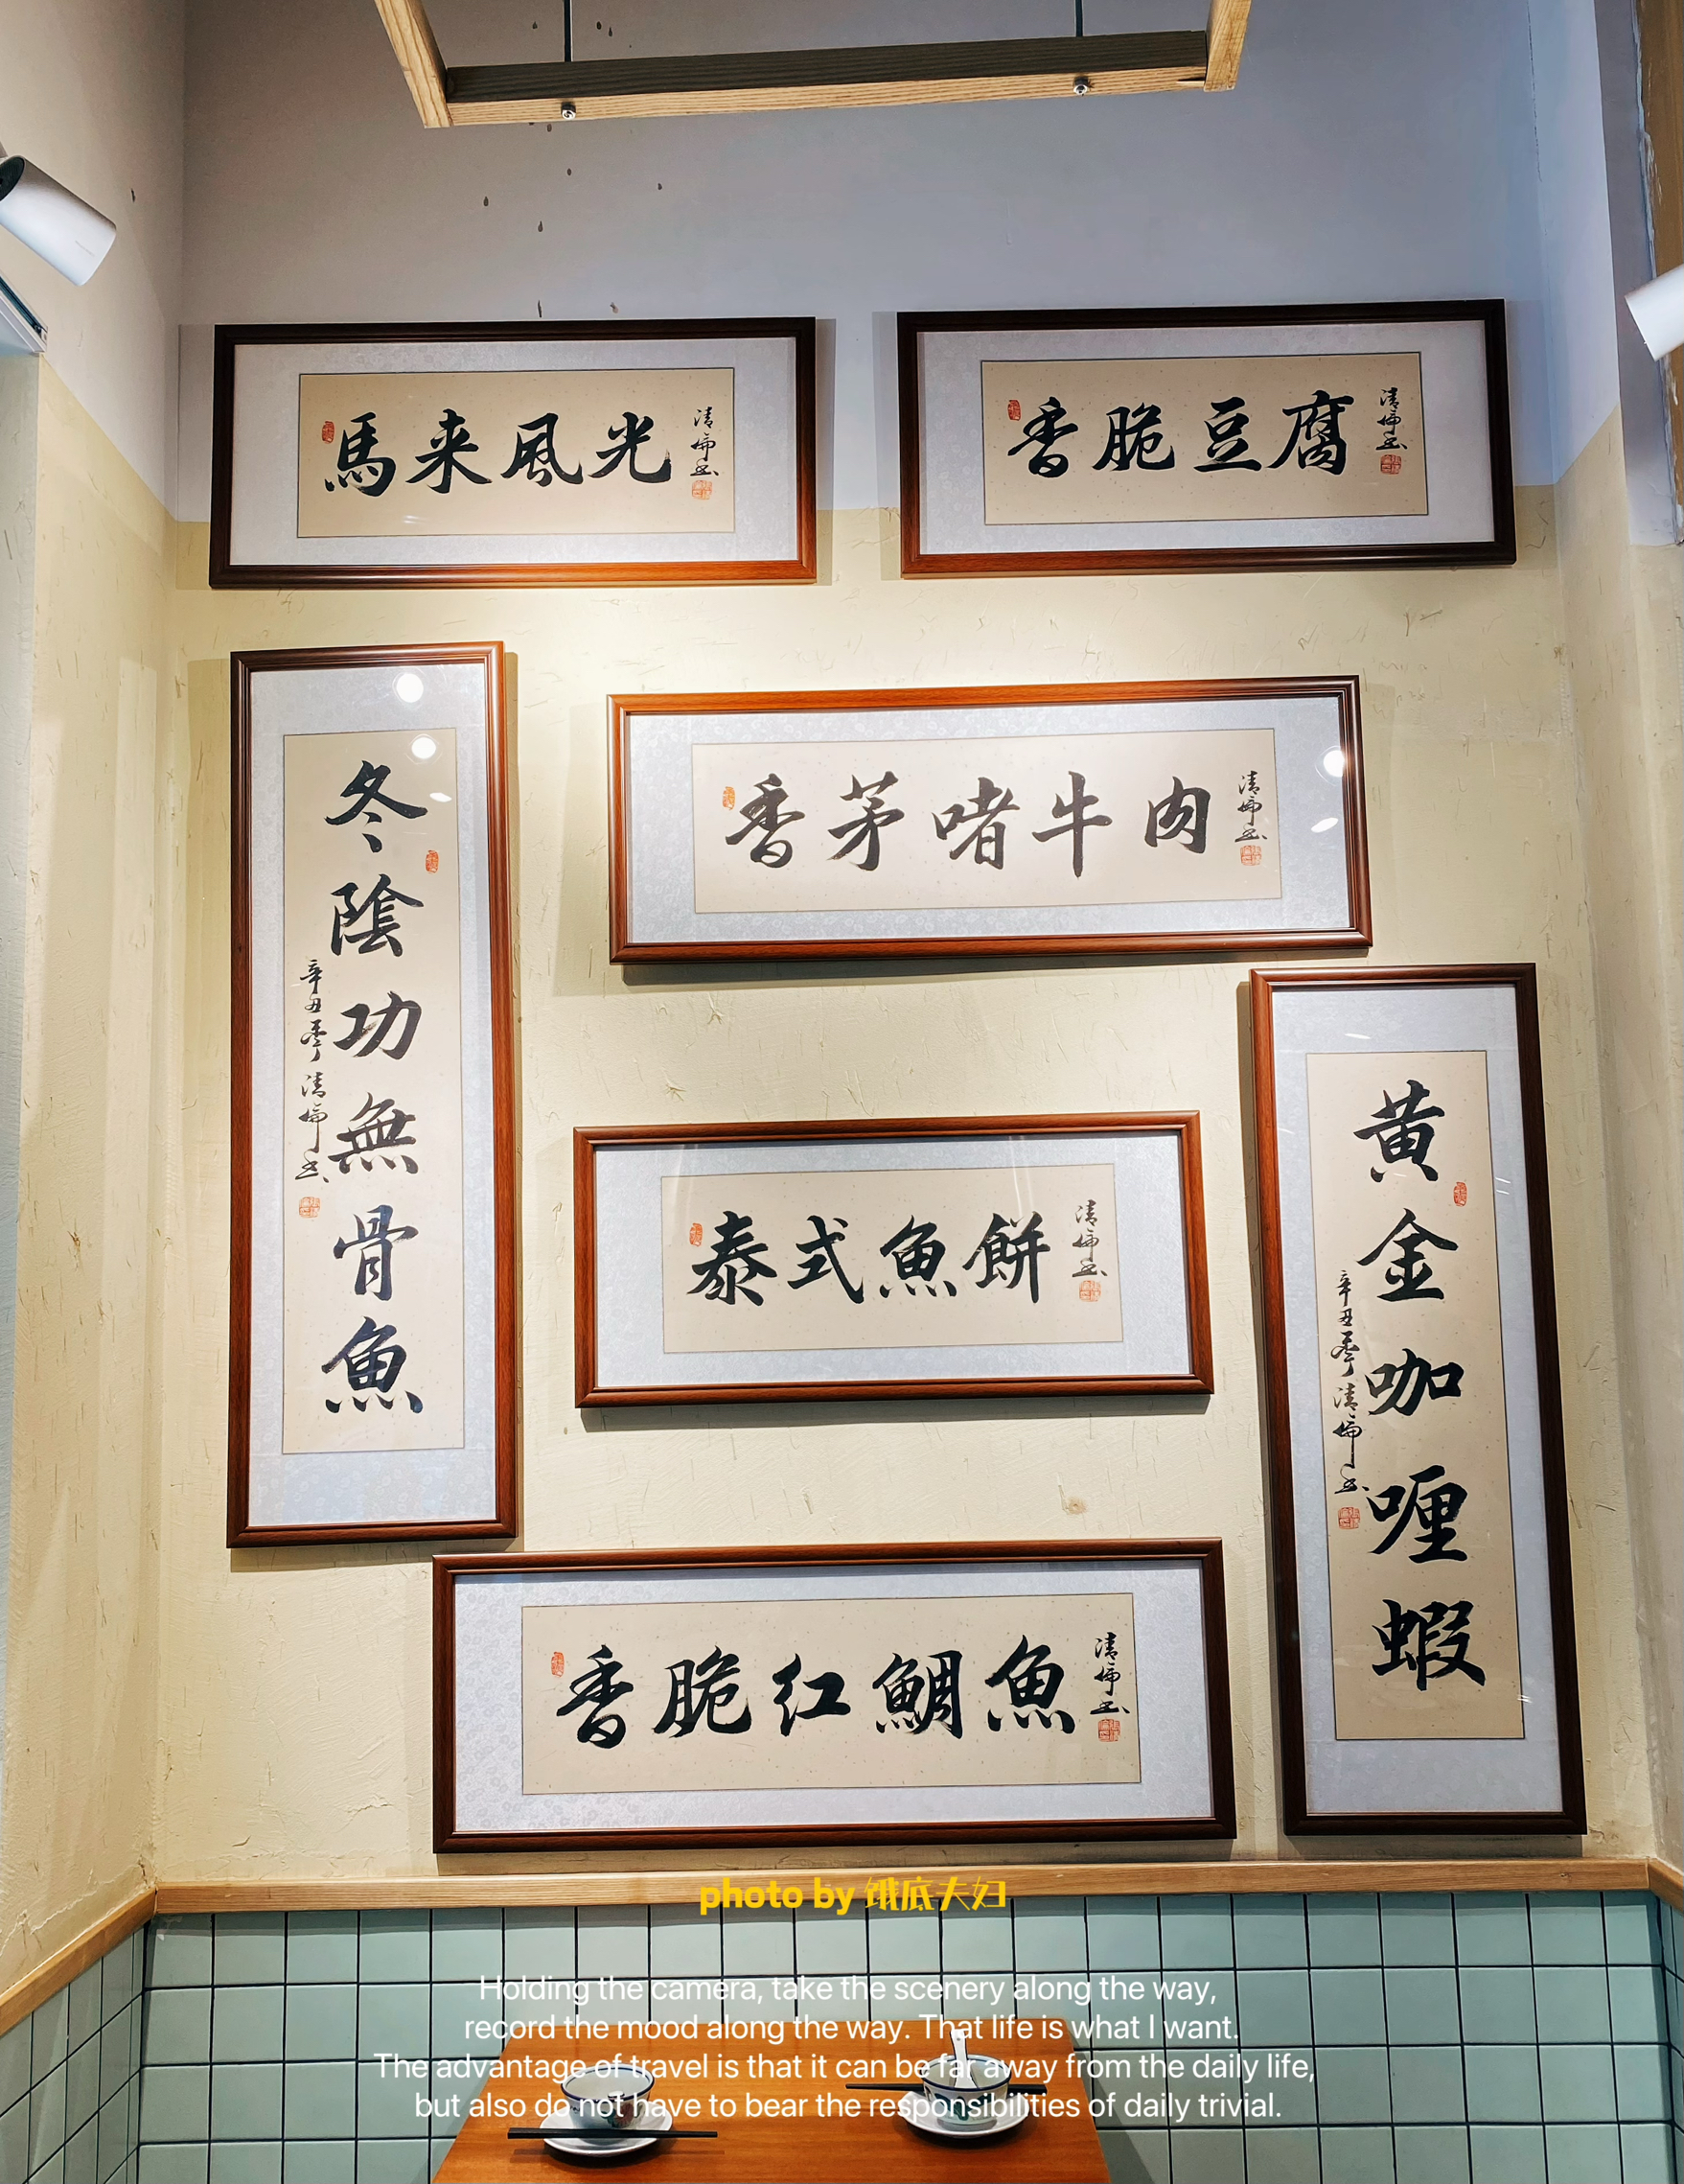 馬来風光
清偏书
香脆豆腐
清偏书
冬陰功無骨魚
辛丑季清偏书
香茅啫牛肉
清偏书
泰式魚餅
清偏书
黄金咖喱蝦
辛丑季清偏书
香脆红鯛魚
清偏书
photo by 饿底夫妇
Holding the camera, take the scenery along the way,
record the mood along the way. That life is what I want.
The advantage of travel is that it can be far away from the daily life,
but also do not have to bear the responsibilities of daily trivial.